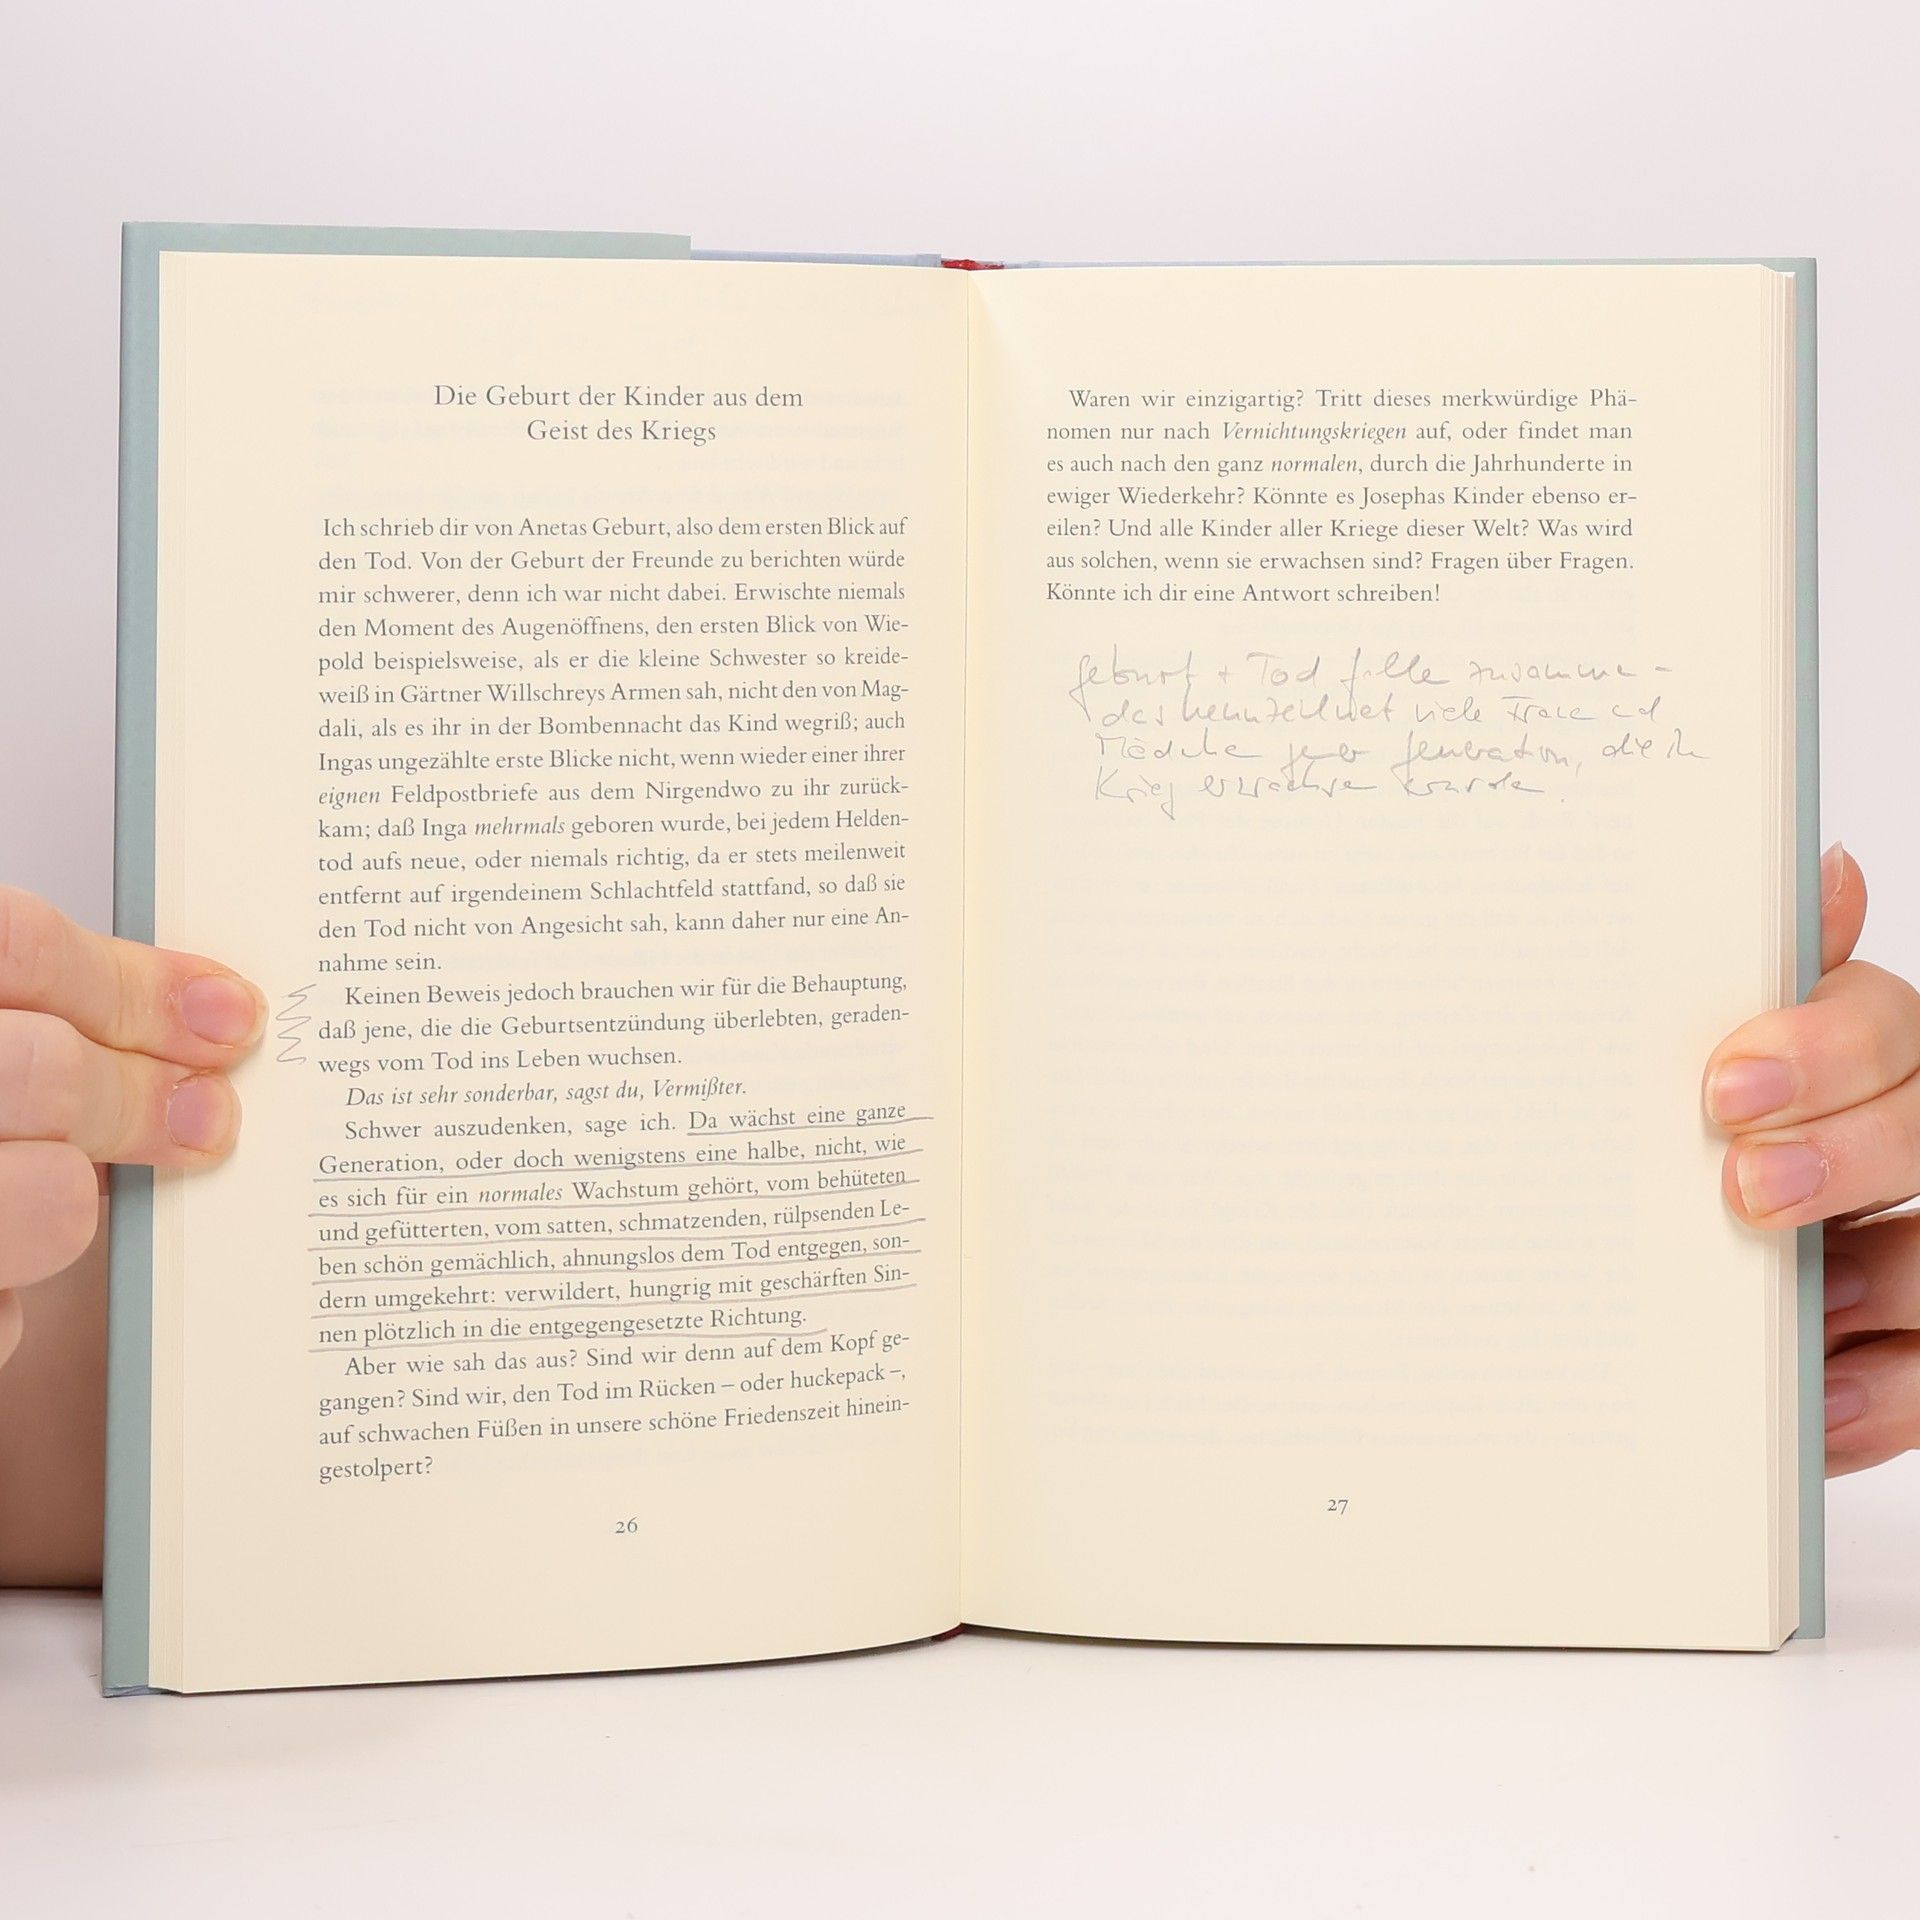 Die Geburt der Kinder aus dem
Geist des Kriegs
Ich schrieb dir von Anetas Geburt, also dem ersten Blick auf
den Tod. Von der Geburt der Freunde zu berichten würde
mir schwerer, denn ich war nicht dabei. Erwischte niemals
den Moment des Augenöffnens, den ersten Blick von Wie-
pold beispielsweise, als er die kleine Schwester so kreide-
weiß in Gärtner Willschreys Armen sah, nicht den von Mag-
dali, als es ihr in der Bombennacht das Kind wegriß; auch
Ingas ungezählte erste Blicke nicht, wenn wieder einer ihrer
eignen Feldpostbriefe aus dem Nirgendwo zu ihr zurück-
kam; daß Inga mehrmals geboren wurde, bei jedem Helden-
tod aufs neue, oder niemals richtig, da er stets meilenweit
entfernt auf irgendeinem Schlachtfeld stattfand, so daß sie
den Tod nicht von Angesicht sah, kann daher nur eine An-
nahme sein.
Keinen Beweis jedoch brauchen wir für die Behauptung,
daß jene, die die Geburtsentzündung überlebten, geraden-
wegs vom Tod ins Leben wuchsen.
Das ist sehr sonderbar, sagst du, Vermißter.
Schwer auszudenken, sage ich. Da wächst eine ganze
Generation, oder doch wenigstens eine halbe, nicht, wie
es sich für ein normales Wachstum gehört, vom behüteten
und gefütterten, vom satten, schmatzenden, rülpsenden Le-
ben schön gemächlich, ahnungslos dem Tod entgegen, son-
dern umgekehrt: verwildert, hungrig mit geschärften Sin-
nen plötzlich in die entgegengesetzte Richtung.
Aber wie sah das aus? Sind wir denn auf dem Kopf ge-
gangen? Sind wir, den Tod im Rücken – oder huckepack –,
auf schwachen Füßen in unsere schöne Friedenszeit hinein-
gestolpert?
26
Waren wir einzigartig? Tritt dieses merkwürdige Phä-
nomen nur nach Vernichtungskriegen auf, oder findet man
es auch nach den ganz normalen, durch die Jahrhunderte in
ewiger Wiederkehr? Könnte es Josephas Kinder ebenso er-
eilen? Und alle Kinder aller Kriege dieser Welt? Was wird
aus solchen, wenn sie erwachsen sind? Fragen über Fragen.
Könnte ich dir eine Antwort schreiben!
Geburt + Tod fallen zusammen -
das kennzeichnet viele Frauen und
Mädchen jener Generation, die im
Krieg erwachsen wurden.
27